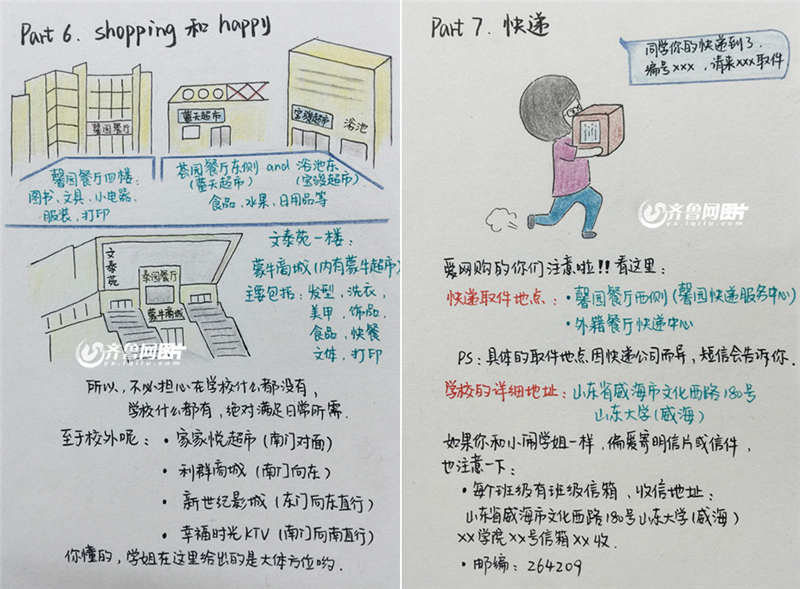 Part 6. shopping 和 happy
馨园餐厅
蓝天超市
宝强超市
浴池
馨园餐厅四楼:
图书、文具、小电器、
服装、打印
荟园餐厅东侧 and 浴池东
(蓝天超市) (宝强超市).
食品、水果、日用品等
文泰苑
泰园餐厅
蒙牛商城
文泰苑一楼:
蒙牛商城(内有蒙牛超市)
主要包括: 发型、洗衣、
美甲、饰品、
食品、快餐
文体、打印
齐鲁网图片
所以,不必担心在学校什么都没有,
学校什么都有,绝对满足日常所需.
至于校外呢: · 家家悦超市(南门对面)
· 利群商城(南门向东)
· 新世纪影城(东门向东直行)
· 幸福时光KTV(南门向南直行)
你懂的,学姐在这里给出的是大体方位哟.
Part 7. 快递
同学你的快递到了.
编号xxx,请来xxx取件
齐鲁网图片
爱网购的你们注意啦!! 看这里:
快递取件地点: · 馨园餐厅西侧(馨园快递服务中心)
· 外籍餐厅快递中心
PS: 具体的取件地点因快递公司而异,短信会告诉你.
学校的详细地址: 山东省威海市文化西路180号
山东大学(威海)
如果你和小闹学姐一样,偏爱寄明信片或信件,
也注意一下:
· 每个班级有班级信箱,收信地址:
山东省威海市文化西路180号山东大学(威海)
xx学院xx号信箱xx收.
· 邮编: 264209